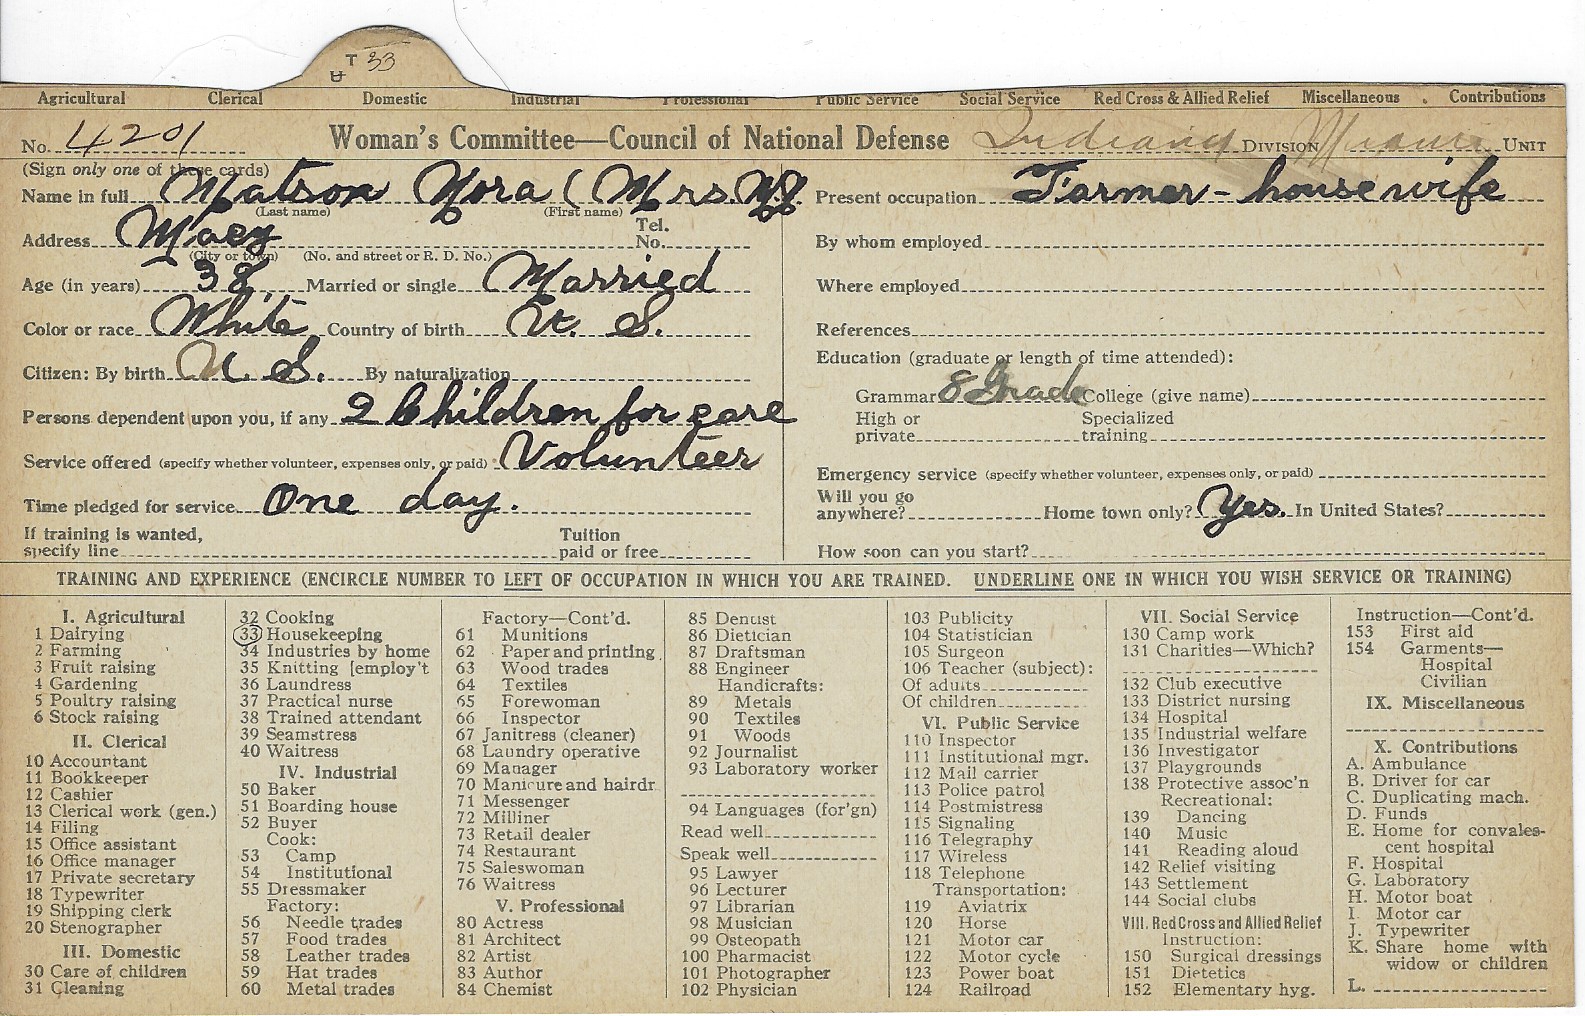 T 33
U
Agricultural Clerical Domestic Industrial Professional Public Service Social Service Red Cross & Allied Relief Miscellaneous Contributions
No. 4201 Woman's Committee—Council of National Defense Indiana DIVISION Miami UNIT
(Sign only one of these cards)
Name in full Matson Nora (Mrs.
(Last name) (First name)
Address Macy Tel. No.
(City or town) (No. and street or R. D. No.)
Age (in years) 38 Married or single Married
Color or race White Country of birth U. S.
Citizen: By birth U. S. By naturalization
Persons dependent upon you, if any 2 Children for care
Service offered (specify whether volunteer, expenses only, or paid) Volunteer
Time pledged for service One day.
If training is wanted, specify line Tuition paid or free
Present occupation Farmer - housewife
By whom employed
Where employed
References
Education (graduate or length of time attended):
Grammar 8 Grade College (give name)
High or private Specialized training
Emergency service (specify whether volunteer, expenses only, or paid)
Will you go anywhere? Home town only? Yes. In United States?
How soon can you start?
TRAINING AND EXPERIENCE (ENCIRCLE NUMBER TO LEFT OF OCCUPATION IN WHICH YOU ARE TRAINED. UNDERLINE ONE IN WHICH YOU WISH SERVICE OR TRAINING)
I. Agricultural
1 Dairying
2 Farming
3 Fruit raising
4 Gardening
5 Poultry raising
6 Stock raising
II. Clerical
10 Accountant
11 Bookkeeper
12 Cashier
13 Clerical work (gen.)
14 Filing
15 Office assistant
16 Office manager
17 Private secretary
18 Typewriter
19 Shipping clerk
20 Stenographer
III. Domestic
30 Care of children
31 Cleaning
32 Cooking
33 Housekeeping
34 Industries by home
35 Knitting [employ't
36 Laundress
37 Practical nurse
38 Trained attendant
39 Seamstress
40 Waitress
IV. Industrial
50 Baker
51 Boarding house
52 Buyer
Cook:
53 Camp
54 Institutional
55 Dressmaker
Factory:
56 Needle trades
57 Food trades
58 Leather trades
59 Hat trades
60 Metal trades
Factory—Cont'd.
61 Munitions
62 Paper and printing
63 Wood trades
64 Textiles
65 Forewoman
66 Inspector
67 Janitress (cleaner)
68 Laundry operative
69 Manager
70 Manicure and hairdr.
71 Messenger
72 Milliner
73 Retail dealer
74 Restaurant
75 Saleswoman
76 Waitress
V. Professional
80 Actress
81 Architect
82 Artist
83 Author
84 Chemist
85 Dentist
86 Dietician
87 Draftsman
88 Engineer
Handicrafts:
89 Metals
90 Textiles
91 Woods
92 Journalist
93 Laboratory worker
94 Languages (for'gn)
Read well
Speak well
95 Lawyer
96 Lecturer
97 Librarian
98 Musician
99 Osteopath
100 Pharmacist
101 Photographer
102 Physician
103 Publicity
104 Statistician
105 Surgeon
106 Teacher (subject):
Of adults
Of children
VI. Public Service
110 Inspector
111 Institutional mgr.
112 Mail carrier
113 Police patrol
114 Postmistress
115 Signaling
116 Telegraphy
117 Wireless
118 Telephone
Transportation:
119 Aviatrix
120 Horse
121 Motor car
122 Motor cycle
123 Power boat
124 Railroad
VII. Social Service
130 Camp work
131 Charities—Which?
132 Club executive
133 District nursing
134 Hospital
135 Industrial welfare
136 Investigator
137 Playgrounds
138 Protective assoc'n
Recreational:
139 Dancing
140 Music
141 Reading aloud
142 Relief visiting
143 Settlement
144 Social clubs
VIII. Red Cross and Allied Relief
Instruction:
150 Surgical dressings
151 Dietetics
152 Elementary hyg.
Instruction—Cont'd.
153 First aid
154 Garments—
Hospital
Civilian
IX. Miscellaneous
X. Contributions
A. Ambulance
B. Driver for car
C. Duplicating mach.
D. Funds
E. Home for convales-
cent hospital
F. Hospital
G. Laboratory
H. Motor boat
I. Motor car
J. Typewriter
K. Share home with
widow or children
L.